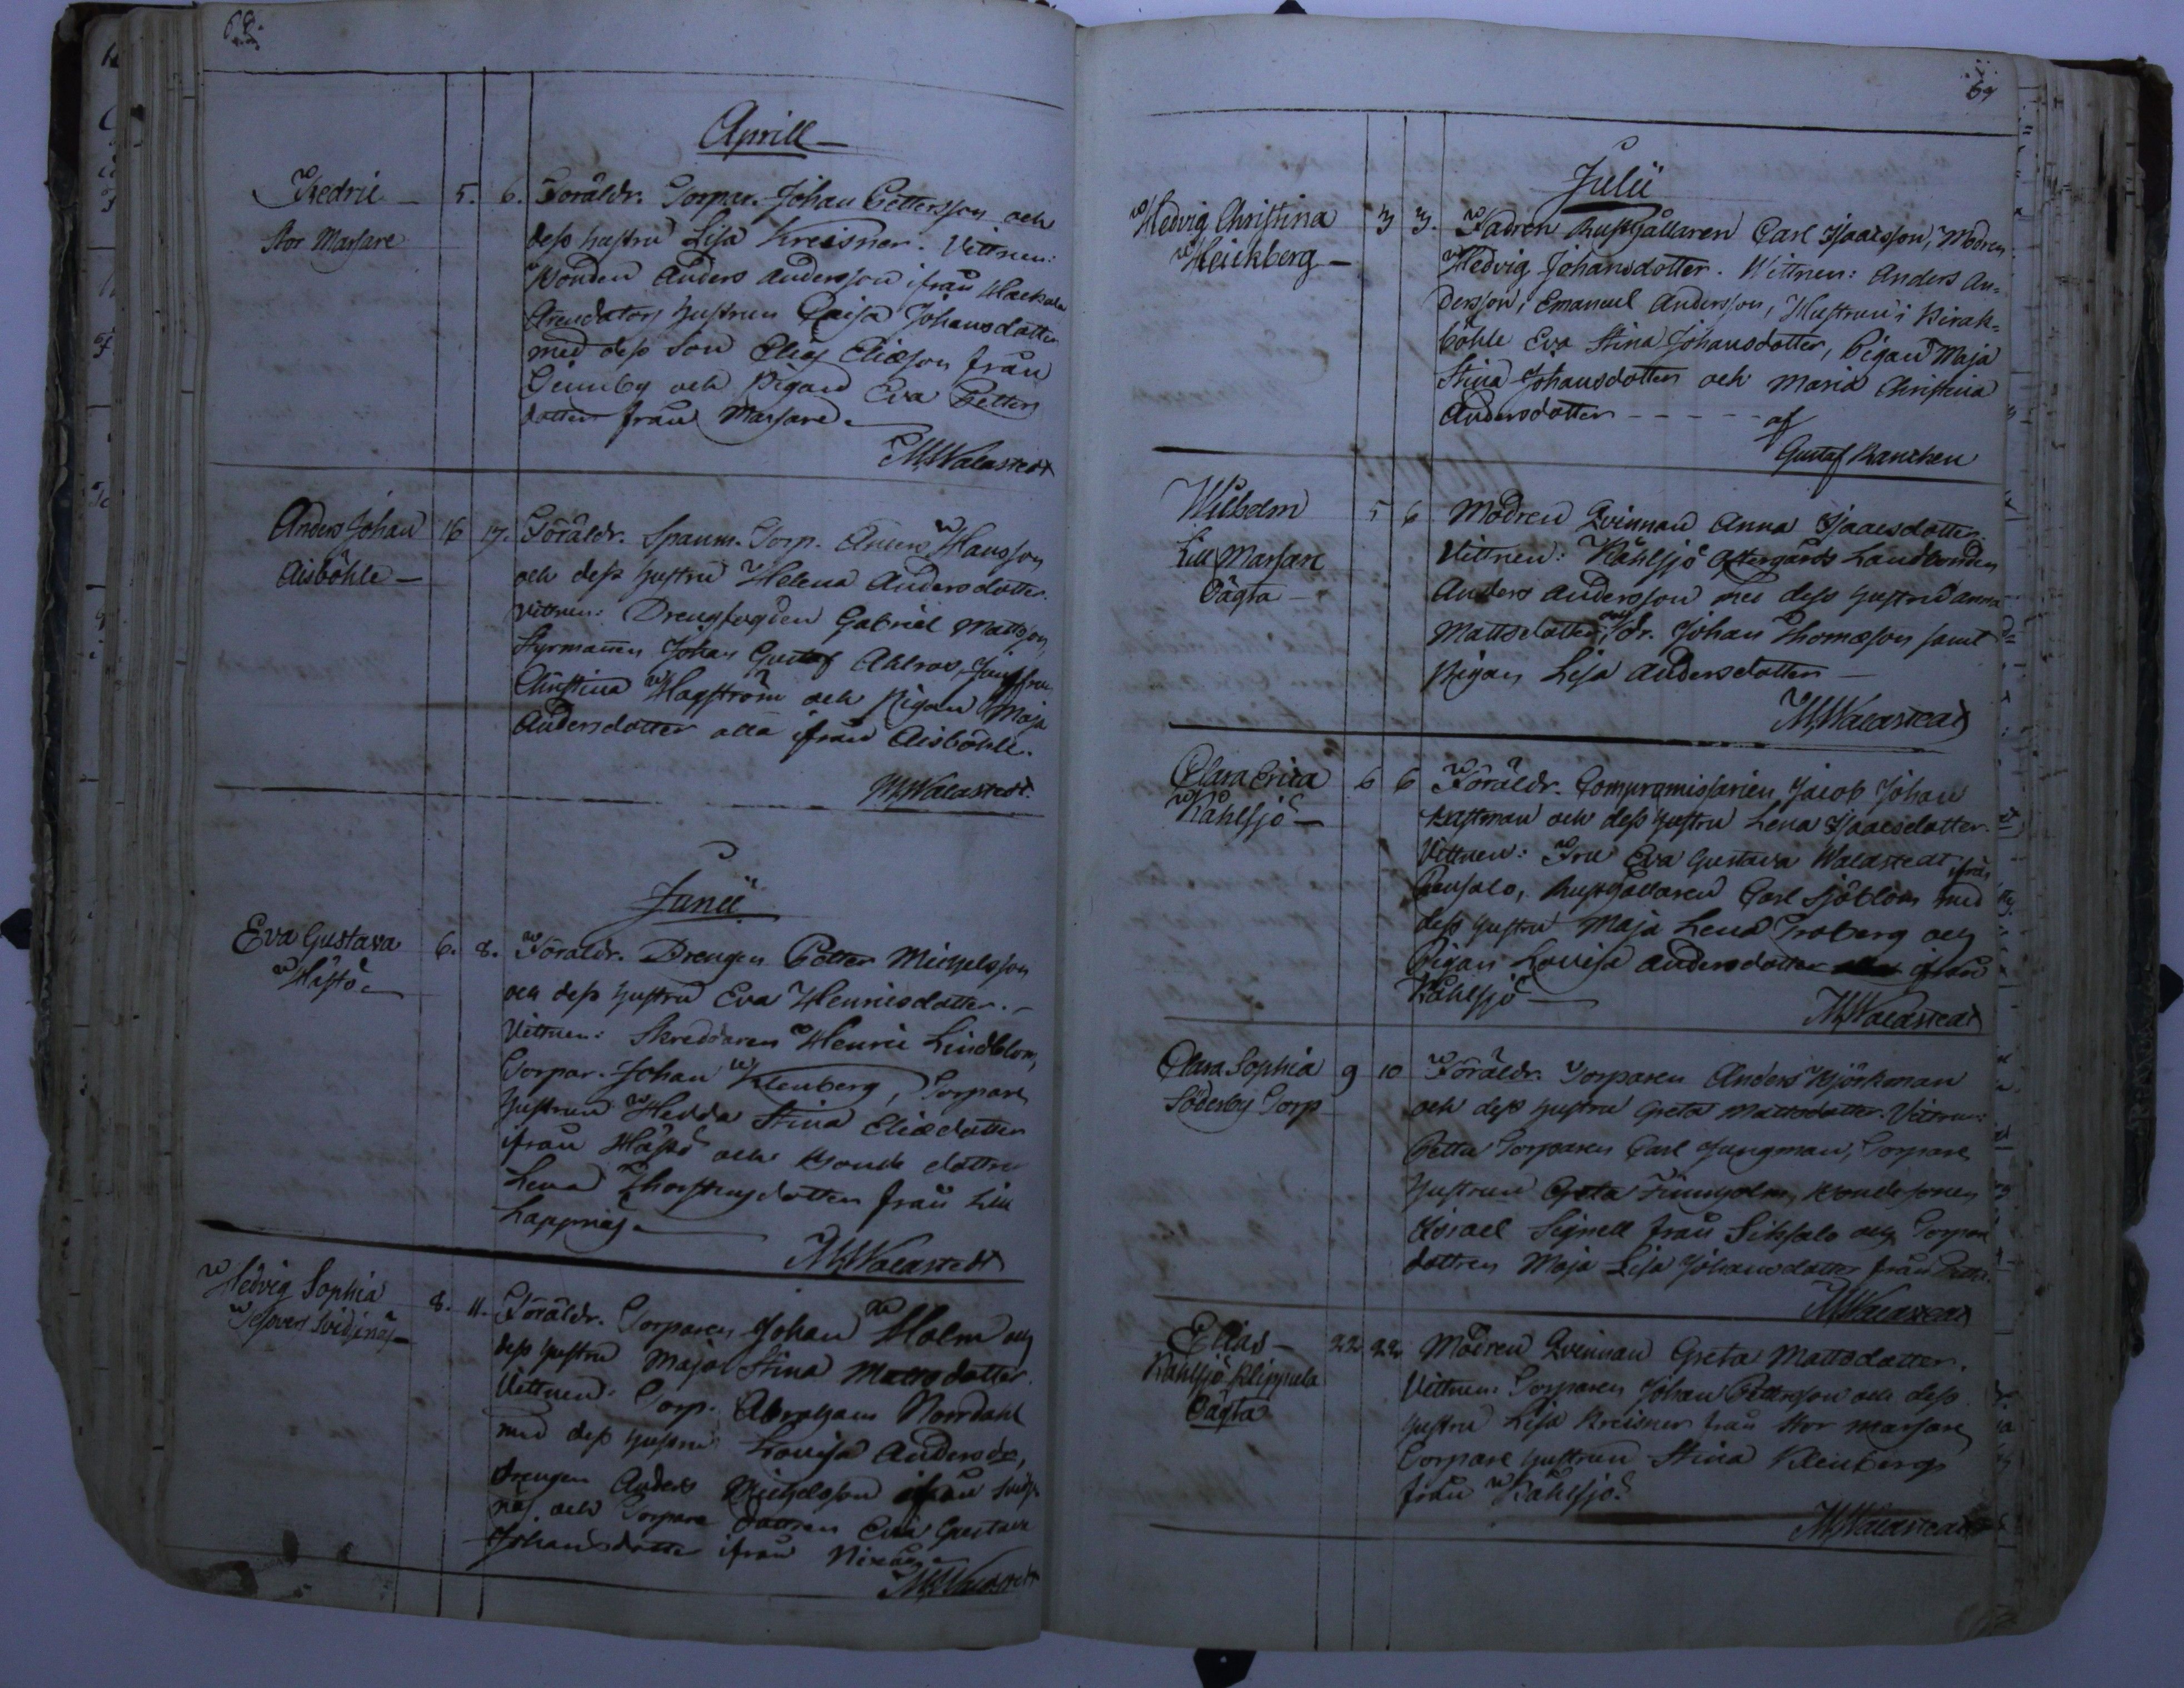 68.
Aprill
Fredric
Stor Marsare
5. 6. Föräldr. Torpar. Johan Pettersson och
dess hustru Lisa Kreisner. Vittnen:
Bonden Anders Andersson ifrån
Arrendators hustrun Caisa Johansdotter
med dess Son Elias Eliæson från
Gunnby och Pigan Eva Petters
dotter från Marsare.
M Walastedt
Anders Johan
Aisböhle
16 17. Föräldr. Spanm. Torp. Anders Hansson
och dess hustru Helena Andersdotter.
Vittnen: Drengfogden Gabriel Mattsson,
Styrmannen Johan Gustaf Ahlros, Jungfru
Christina Hagström och Pigan Maja
Andersdotter alla ifrån Aisböhle.
M Walastedt.
Junii
Eva Gustava
Hästö
6. 8. Föräldr. Drengen Petter Michelsson
och dess hustru Eva Henricsdotter.
Vittnen: Skreddaren Henric Lindblom,
Torpar. Johan Klenberg, Torpare
hustrun Hedda Stina Eliædotter
ifrån Hästö och Bonde dottren
Lena Thorstensdotter från Lill
Lappnäs
M Walastedt
Hedvig Sophia
8. 11. Föräldr. Torparen Johan Holm och
dess hustru Maja Stina Mattsdotter.
Vittnen: Torp. Abraham Norrdahl
med dess hustru Lovisa Andersdr,
Drengen Anders Michelsson ifrån
näs och Torpare dottren Eva Gustava
Johansdotter ifrån
M Walastedt
69
Julii
Hedvig Christina
Heickberg
3 3. Fadren Rusthållaren Carl Isaacsson, Modren
Hedvig Johansdotter. Vittnen: Anders An=
dersson, Emanuel Andersson, Hustrun i Kirak=
böhle Eva Stina Johansdotter, Pigan Maja
Stina Johansdotter och Maria Christina
Andersdotter - - - - - af
Gustaf Rancken
Wilhelm
Lill Marsare
Oägta
5 6 Modren Qvinnan Anna Isaacsdotter.
Vittnen: Kåhlsjö Östergårds Landbonden
Anders Andersson med dess hustru Anna
Mattsdotter, och dr. Johan Thomæson samt
Pigan Lisa Andersdotter
M Walastedt
Clara Erica
Kåhlsjö
6 6 Föräldr. Compromissarien Jacob Johan
Kastman och dess hustru Lena Isaacsdotter.
Vittnen: Fru Eva Gustava Walastedt ifrån
Rusthållaren Carl Sjöblom med
dess hustru Maja Lena Troberg och
Pigan Lovisa Andersdotter ifrån
Kåhlsjö
M Walastedt
Clara Sophia
Söderby Torp
9 10 Föräldr. Torparen Anders Björkman
och dess hustru Greta Mattsdotter. Vittnen:
Torparen Carl Ljungman, Torpare
hustrun Greta Bondesonen
Israel Signell från Siksalo och Torpare
dottren Maja Lisa Johansdotter från
M Walastedt
Elias
Kåhlsjö Klippula
Oägta
22 22 Modren Qvinnan Greta Mattsdotter.
Vittnen: Torparen Johan Pettersson och dess
hustru Lisa Kreisner från Stor Marsare
Torpare hustrun Stina Klenberg
från Kåhlsjö
M Walastedt